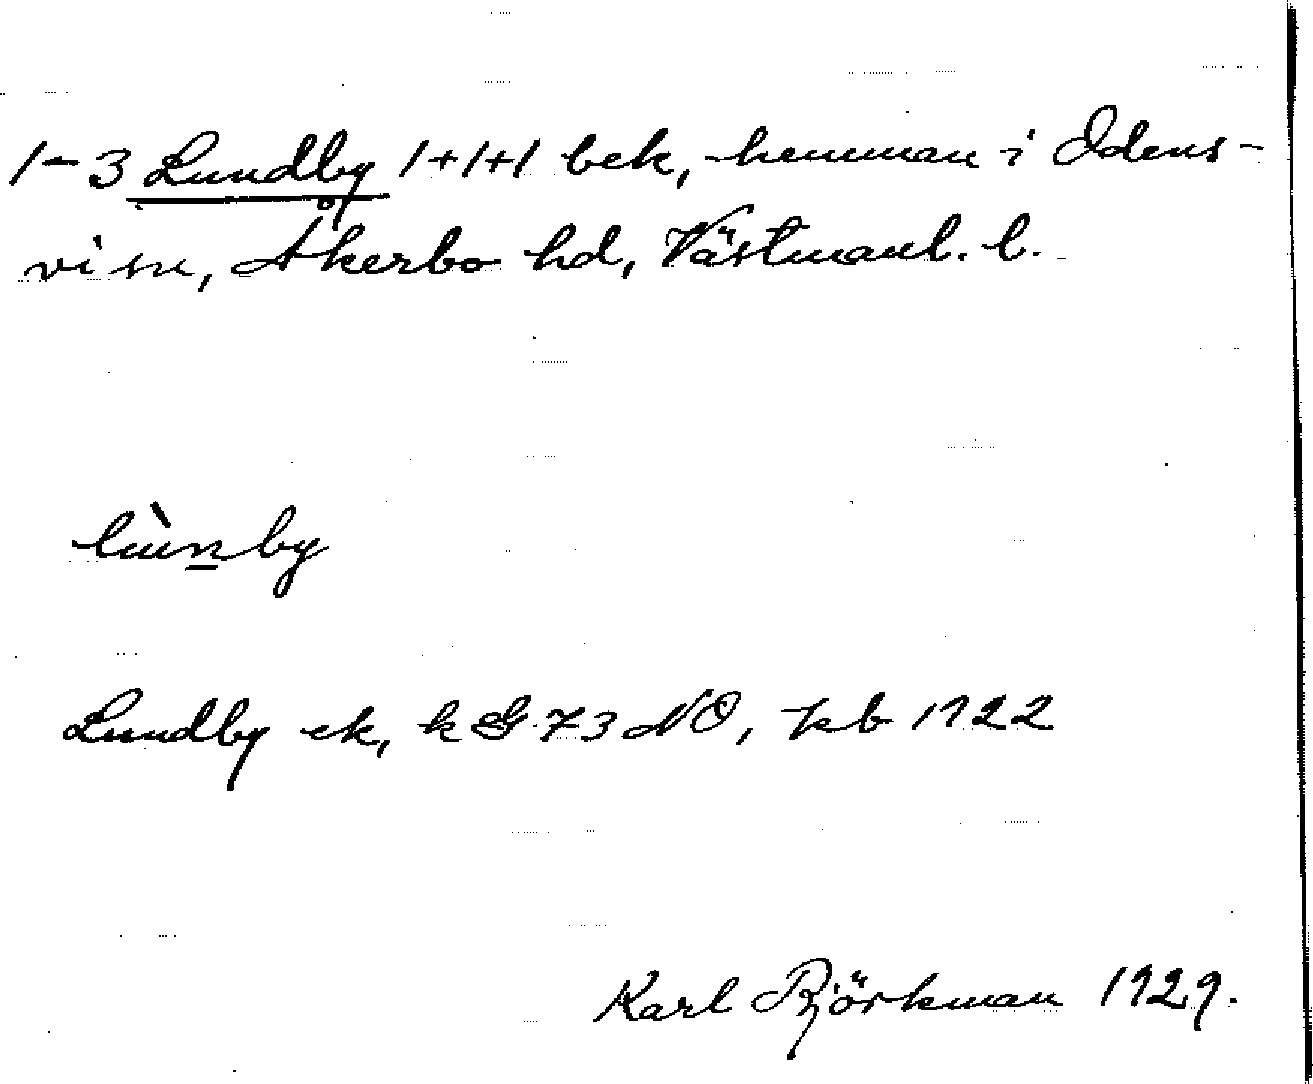 1–3 Lundby 1+1+1 bek, hemman i Odens-
vi sn, Åkerbo hd, Västmanl. l.
lùn̲by
Lundby ek, k G 73 NO, kb 1922
Karl Björkman 1929.